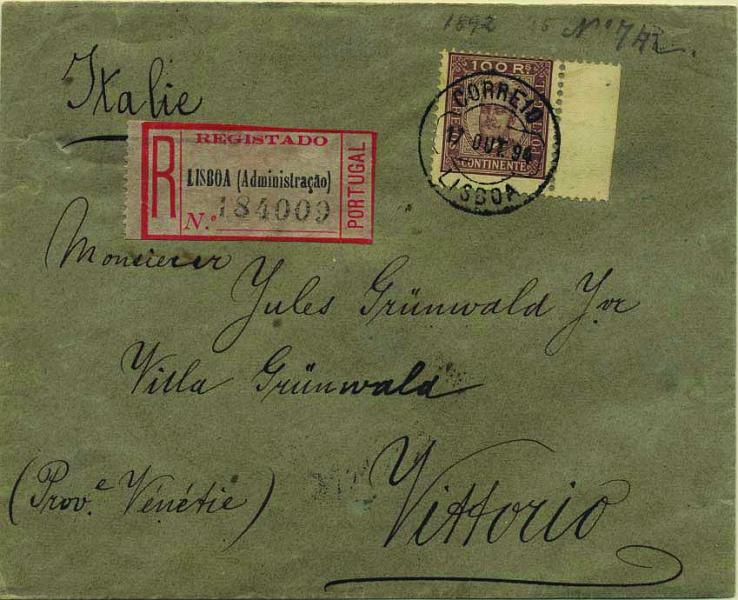 1892
Italie
100 Rs
CORREIO
17 OUT. 94
LISBOA
CONTINENTE
REGISTADO
R
LISBOA (Administração)
N.º 184009
PORTUGAL
Monsieur
Jules Grünwald Jor
Villa Grünwald
Vittorio
(Prov.e Vénétie)